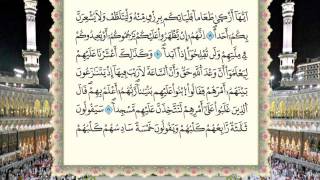 أَيُّهَا أَزْكَىٰ طَعَامًا فَلْيَأْتِكُم بِرِزْقٍ مِّنْهُ وَلْيَتَلَطَّفْ وَلَا يُشْعِرَنَّ
بِكُمْ أَحَدًا ۝ إِنَّهُمْ إِن يَظْهَرُوا عَلَيْكُمْ يَرْجُمُوكُمْ أَوْ يُعِيدُوكُمْ
فِي مِلَّتِهِمْ وَلَن تُفْلِحُوا إِذًا أَبَدًا ۝ وَكَذَٰلِكَ أَعْثَرْنَا عَلَيْهِمْ
لِيَعْلَمُوا أَنَّ وَعْدَ ٱللَّهِ حَقٌّ وَأَنَّ ٱلسَّاعَةَ لَا رَيْبَ فِيهَا إِذْ يَتَنَٰزَعُونَ
بَيْنَهُمْ أَمْرَهُمْ فَقَالُوا ٱبْنُوا عَلَيْهِم بُنْيَٰنًا رَّبُّهُمْ أَعْلَمُ بِهِمْ قَالَ
ٱلَّذِينَ غَلَبُوا عَلَىٰ أَمْرِهِمْ لَنَتَّخِذَنَّ عَلَيْهِم مَّسْجِدًا ۝ سَيَقُولُونَ
ثَلَٰثَةٌ رَّابِعُهُمْ كَلْبُهُمْ وَيَقُولُونَ خَمْسَةٌ سَادِسُهُمْ كَلْبُهُمْ